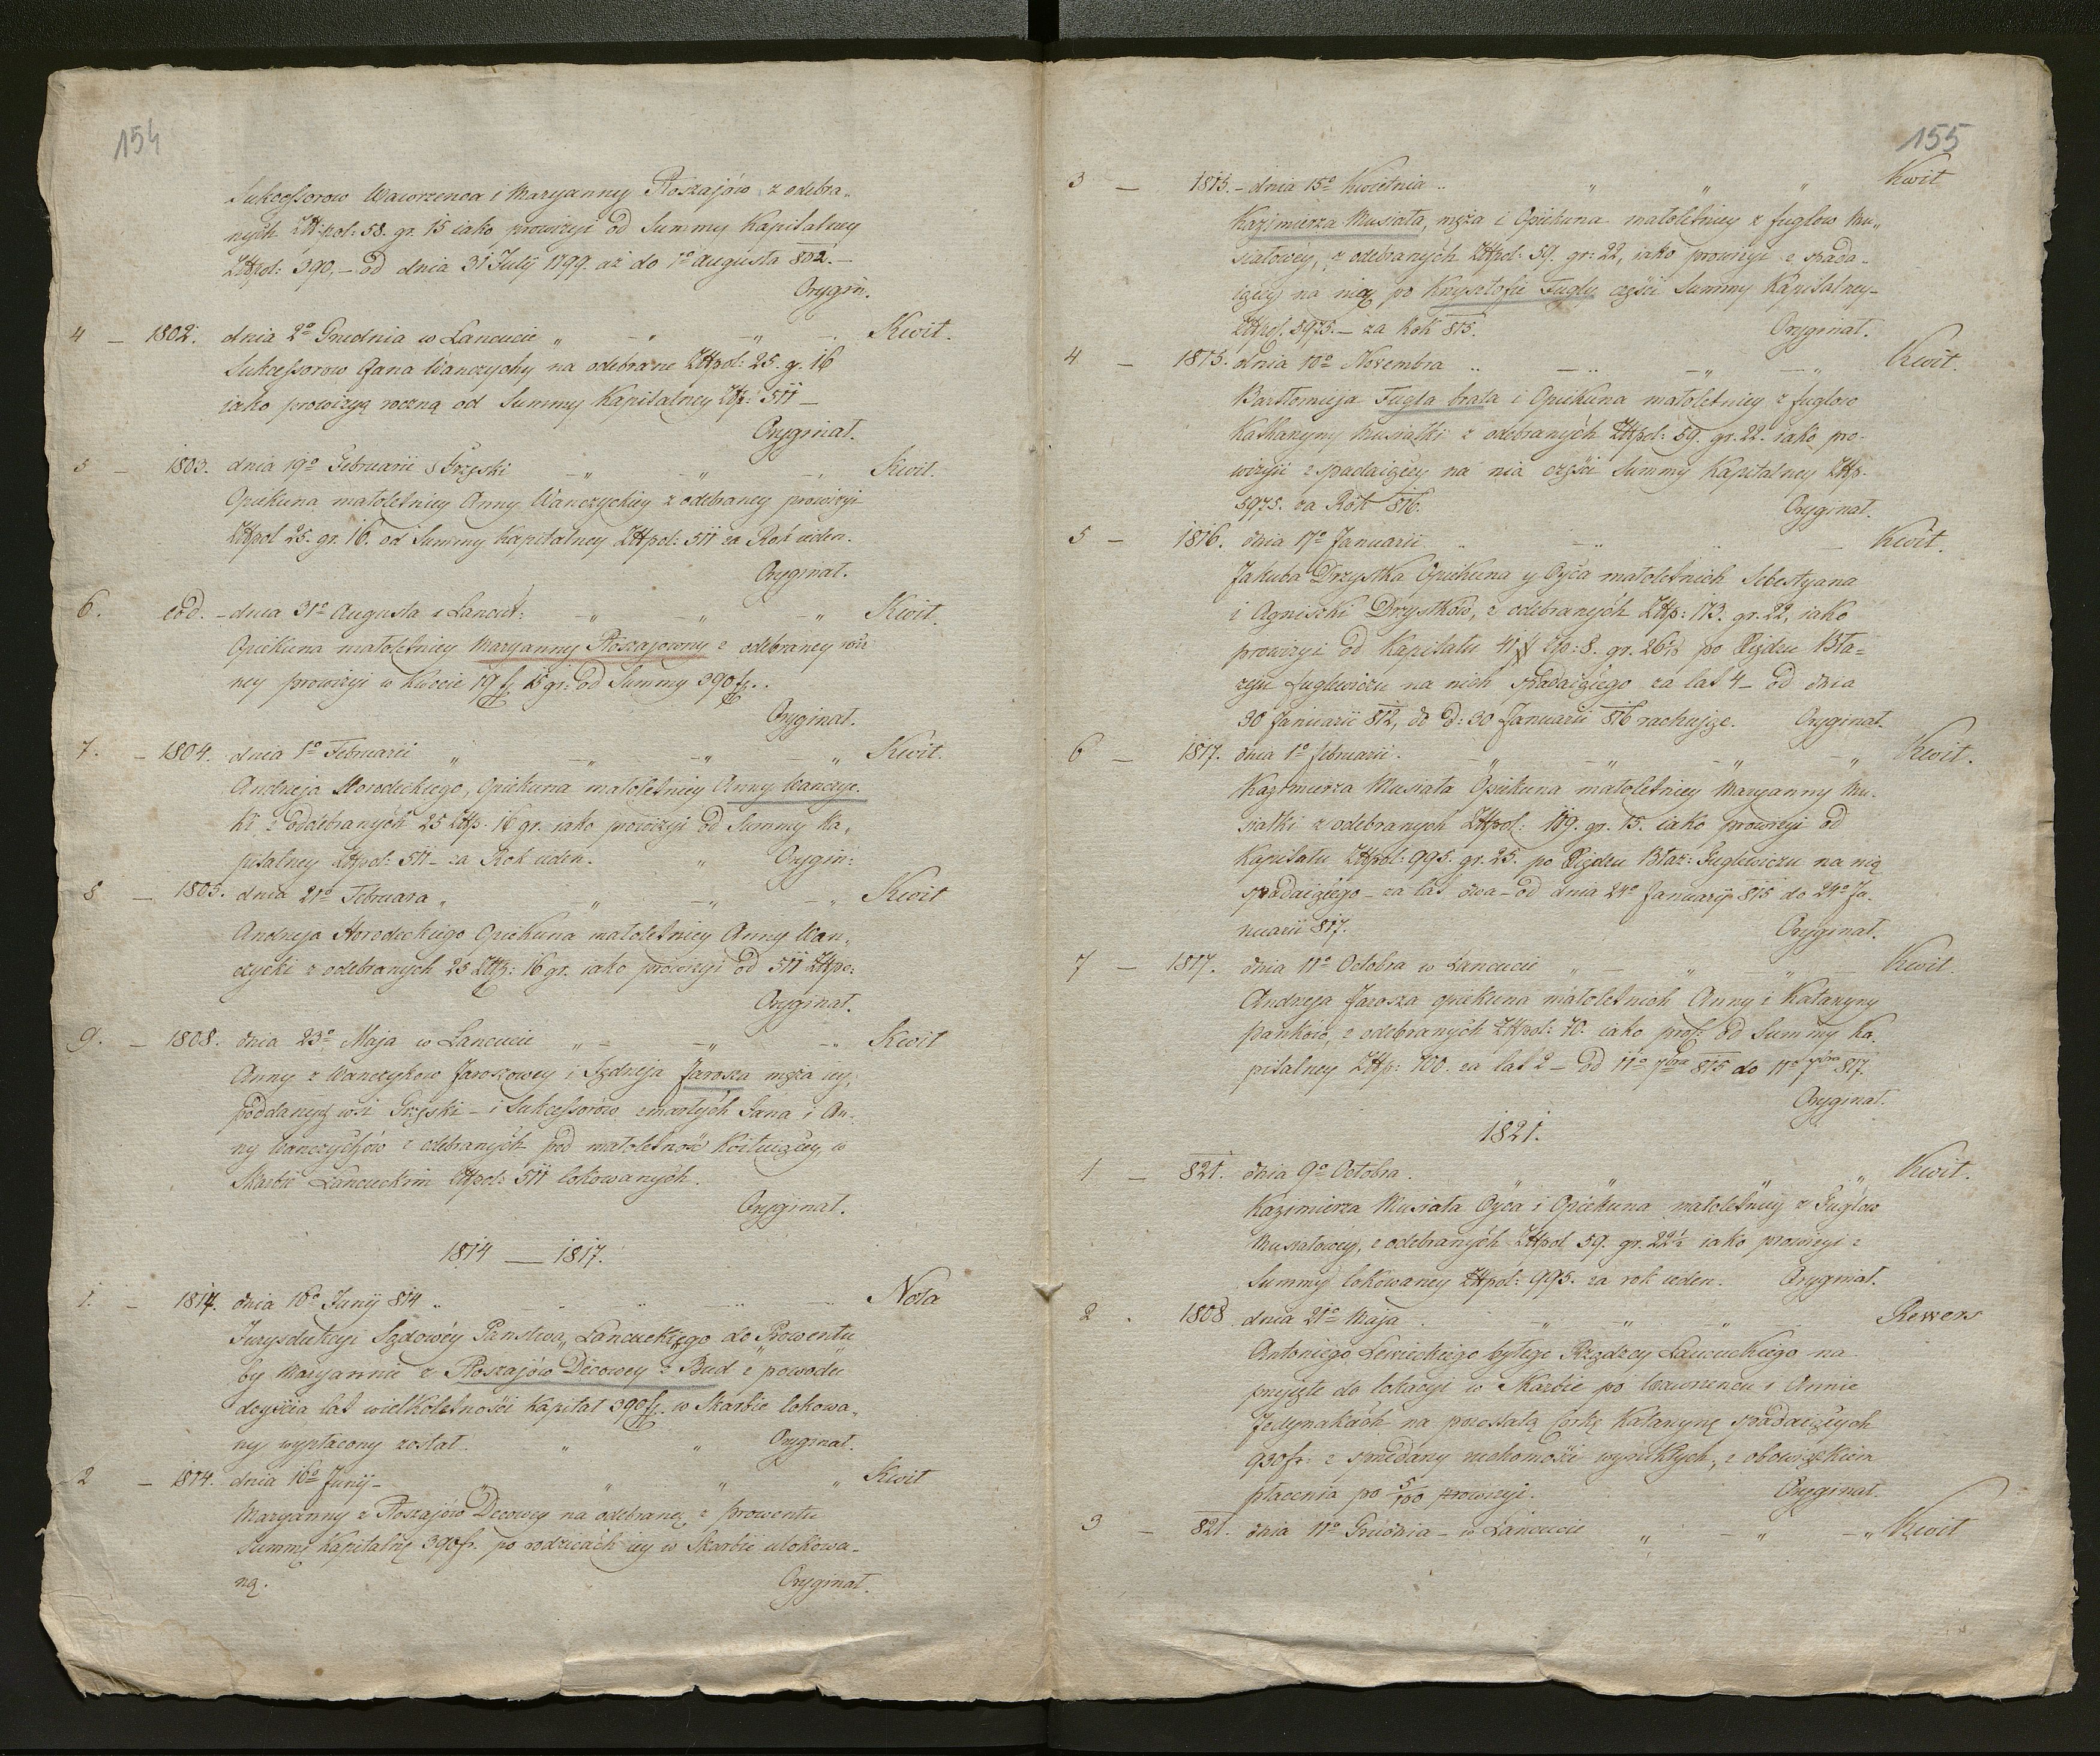 154
Sukcessorow Wawrzenca i Maryanny Płoszajów z odebra„
nych ZŁpol: 58. gr. 15 iako prowizyi od Summy Kapitalney
ZŁpol: 390,– od dnia 31 Julÿ 1799. aż do 1º Augusta 802.–
Orygin.
4 – 1802. dnia 2º Grudnia w Lancucie „ –„ –„ –. Kwit.
Sukcessorow Jana Wanczychy na odebrane ZŁpol: 25. g. 16
iako prowizyą roczną od Summy Kapitalney Złp: 511 –
Oryginał.
5 – 1803. dnia 19º Februarii –„ –„ –„ Kwit.
Opiekuna małoletniey Anny Wanczyckiey z odebraney prowizyi
ZŁpol 25. gr. 16. od Summy Kapitalney ZŁpol: 511 za Rok ieden.
Oryginał.
6. eod. – dnia 31º Augusta z Lancut: –„ –„ –„ Kwit.
Opiekuna małoletniey Maryanny Płoszajowny z odebraney rocz
ney prowizyi w kwocie 19 f. 15 gr: od Summy 390 f..
Oryginał.
7. – 1804. dnia 1º Februarii „ –„ –„ –„ Kwit.
Andrzeja Horodeckiego, Opiekuna małoletniey Anny Wanczyc.
ki, z oddebranych 25 ZŁp. 16 gr. iako prowizyi od Summy Ka„
pitalney ZŁpol: 511 – za Rok ieden. „ Orygin:
8 – 1805. dnia 21º Februara „ –„ –„ –„ Kwit
Andrzeja Horodeckiego Opiekuna małoletniey Anny Wan„
czycki z odebranych 25 ZŁp: 16 gr. iako prowizyi od 511 ZŁpo:
Oryginał.
9. – 1808. dnia 23º Maja w Lancucie „ – –„ –„ Kwit
Anny z Wanczykow Jaroszowey i Jędrzeja Jarosza męża iey,
poddanych wsi – i Sukcessorów zmarłych Jana i An„
ny Wanczychów z odebranych pod małoletność w
Skarbie Lancuckim ZŁpol: 511 lokowanych.
Oryginał.
1814 — 1817.
1. – 1814. dnia 16º Junÿ 814 „ Nota
Jurysdukcyi Sądowéy Panstwa „ Lancuckiego do „ Prowentu
by Maryannie z Płoszajów Decowey z Bud z powodu
doyścia lat wielkoletności Kapitał 390 f. w Skarbie lokowa„
ny wypłacony został. „ „ Oryginał.
2 – 1814. dnia 16º Junÿ – „ „ „ Kwit
Maryanny z Płoszajów Decowey na odebraną z prowentu
Summę Kapitalną 390 f. po rodzicach iey w Skarbie ulokowa„
ną. Oryginał.
155
3 – 1815. – dnia 15º Kwietnia „ „ „ „ Kwit
Kazimierza Musiała, męża i Opiekuna małoletniey z fuglow Mu„
siałowéy, z odebranych ZŁpol: 59. gr: 22, iako prowizyi z spada„
iącey na nię po Krysztofie Fuglu części Summy Kapitalney –
ZŁpol. 5975. – za Rok 815. Oryginał.
4 – 1815. dnia 10º Novembra „ –„ –„ –„ Kwit.
Bartłomieja Fugla brata i Opiekuna małoletniey z fuglow
Katharyny Musiałki z odebranych ZŁpol: 59. gr. 22. iako pro„
wizyi z spadaiącey na nia części Summy Kapitalney ZŁp.
5975. za Rok 816. Oryginał.
5 – 1816. dnia 17º Januarii „ –„ „ – Kwit.
Jakuba Drzystka Opiekuna y Oyca małoletnich Sebestyana
i Agniszki Drzystków, z odebranych ZŁp: 173. gr. 22, iako
prowizyi od Kapitału Złp: 8. gr. po Xiędzu Bła=
żeju Fuglewiczu na nich spadaiącego za lat 4 – od dnia
30 Januarii 812, do d: 30 Januarii 816 rachuiąc. Oryginał.
6 – 1817. dnia 1º februarii. –„ –„ –„ –„ Kwit.
Kazimierza Musiała Opiekuna małoletniey Maryanny Mu„
siałki z odebranych ZŁpol: 119. gr. 15. iako prowizyi od
Kapitału ZŁpol: 995. gr. 25. po Xiędzu Błaż: Fuglewiczu na nią
spadaiącego – za lat dwa – od dnia 24º Januarÿ 815 do 24º Ja„
nuarii 817. Oryginał.
7 – 1817. dnia 11º Octobra w Lancucie „ – „ –„ – Kwit.
Andrzeja Jarosza opiekuna małoletnich Anny i Katarzyny
Panków, z odebranych ZŁpol: 70. iako prof: od Summy Ka„
pitalney ZŁp: 700. za lat 2 – od 11º 7bra 815 do 11º 7bra 817.
Oryginał.
1821.
1 – 821. dnia 9º Octobra. „ „ „ Kwit.
Kazimierza Musiała Oyca i Opiekuna małoletniey z Fuglow
Musiałowey, z odebranych ZŁpol 59. gr. 22½ iako prowizyi z
Summy lokowaney ZŁpol: 995. za rok ieden. Oryginał.
2 . 1808. dnia 21º Maja . –„ –„ –„ Rewers
Antoniego Lewickiego byłego Rządzcy Lancuckiego na
przyięte do lokacyi w Skarbie po Wawrzencu i Annie
Jedynakach na pozostałą córkę Katarzynę spadaiących
930 fr: z sprzedanÿ ruchomości wynikłych, z obowiązkiem
płacenia po 5/100 prowizyi. Oryginał.
3 – 821. dnia 11º Grudnia – w Łańcucie „ –„ –„ Kwit